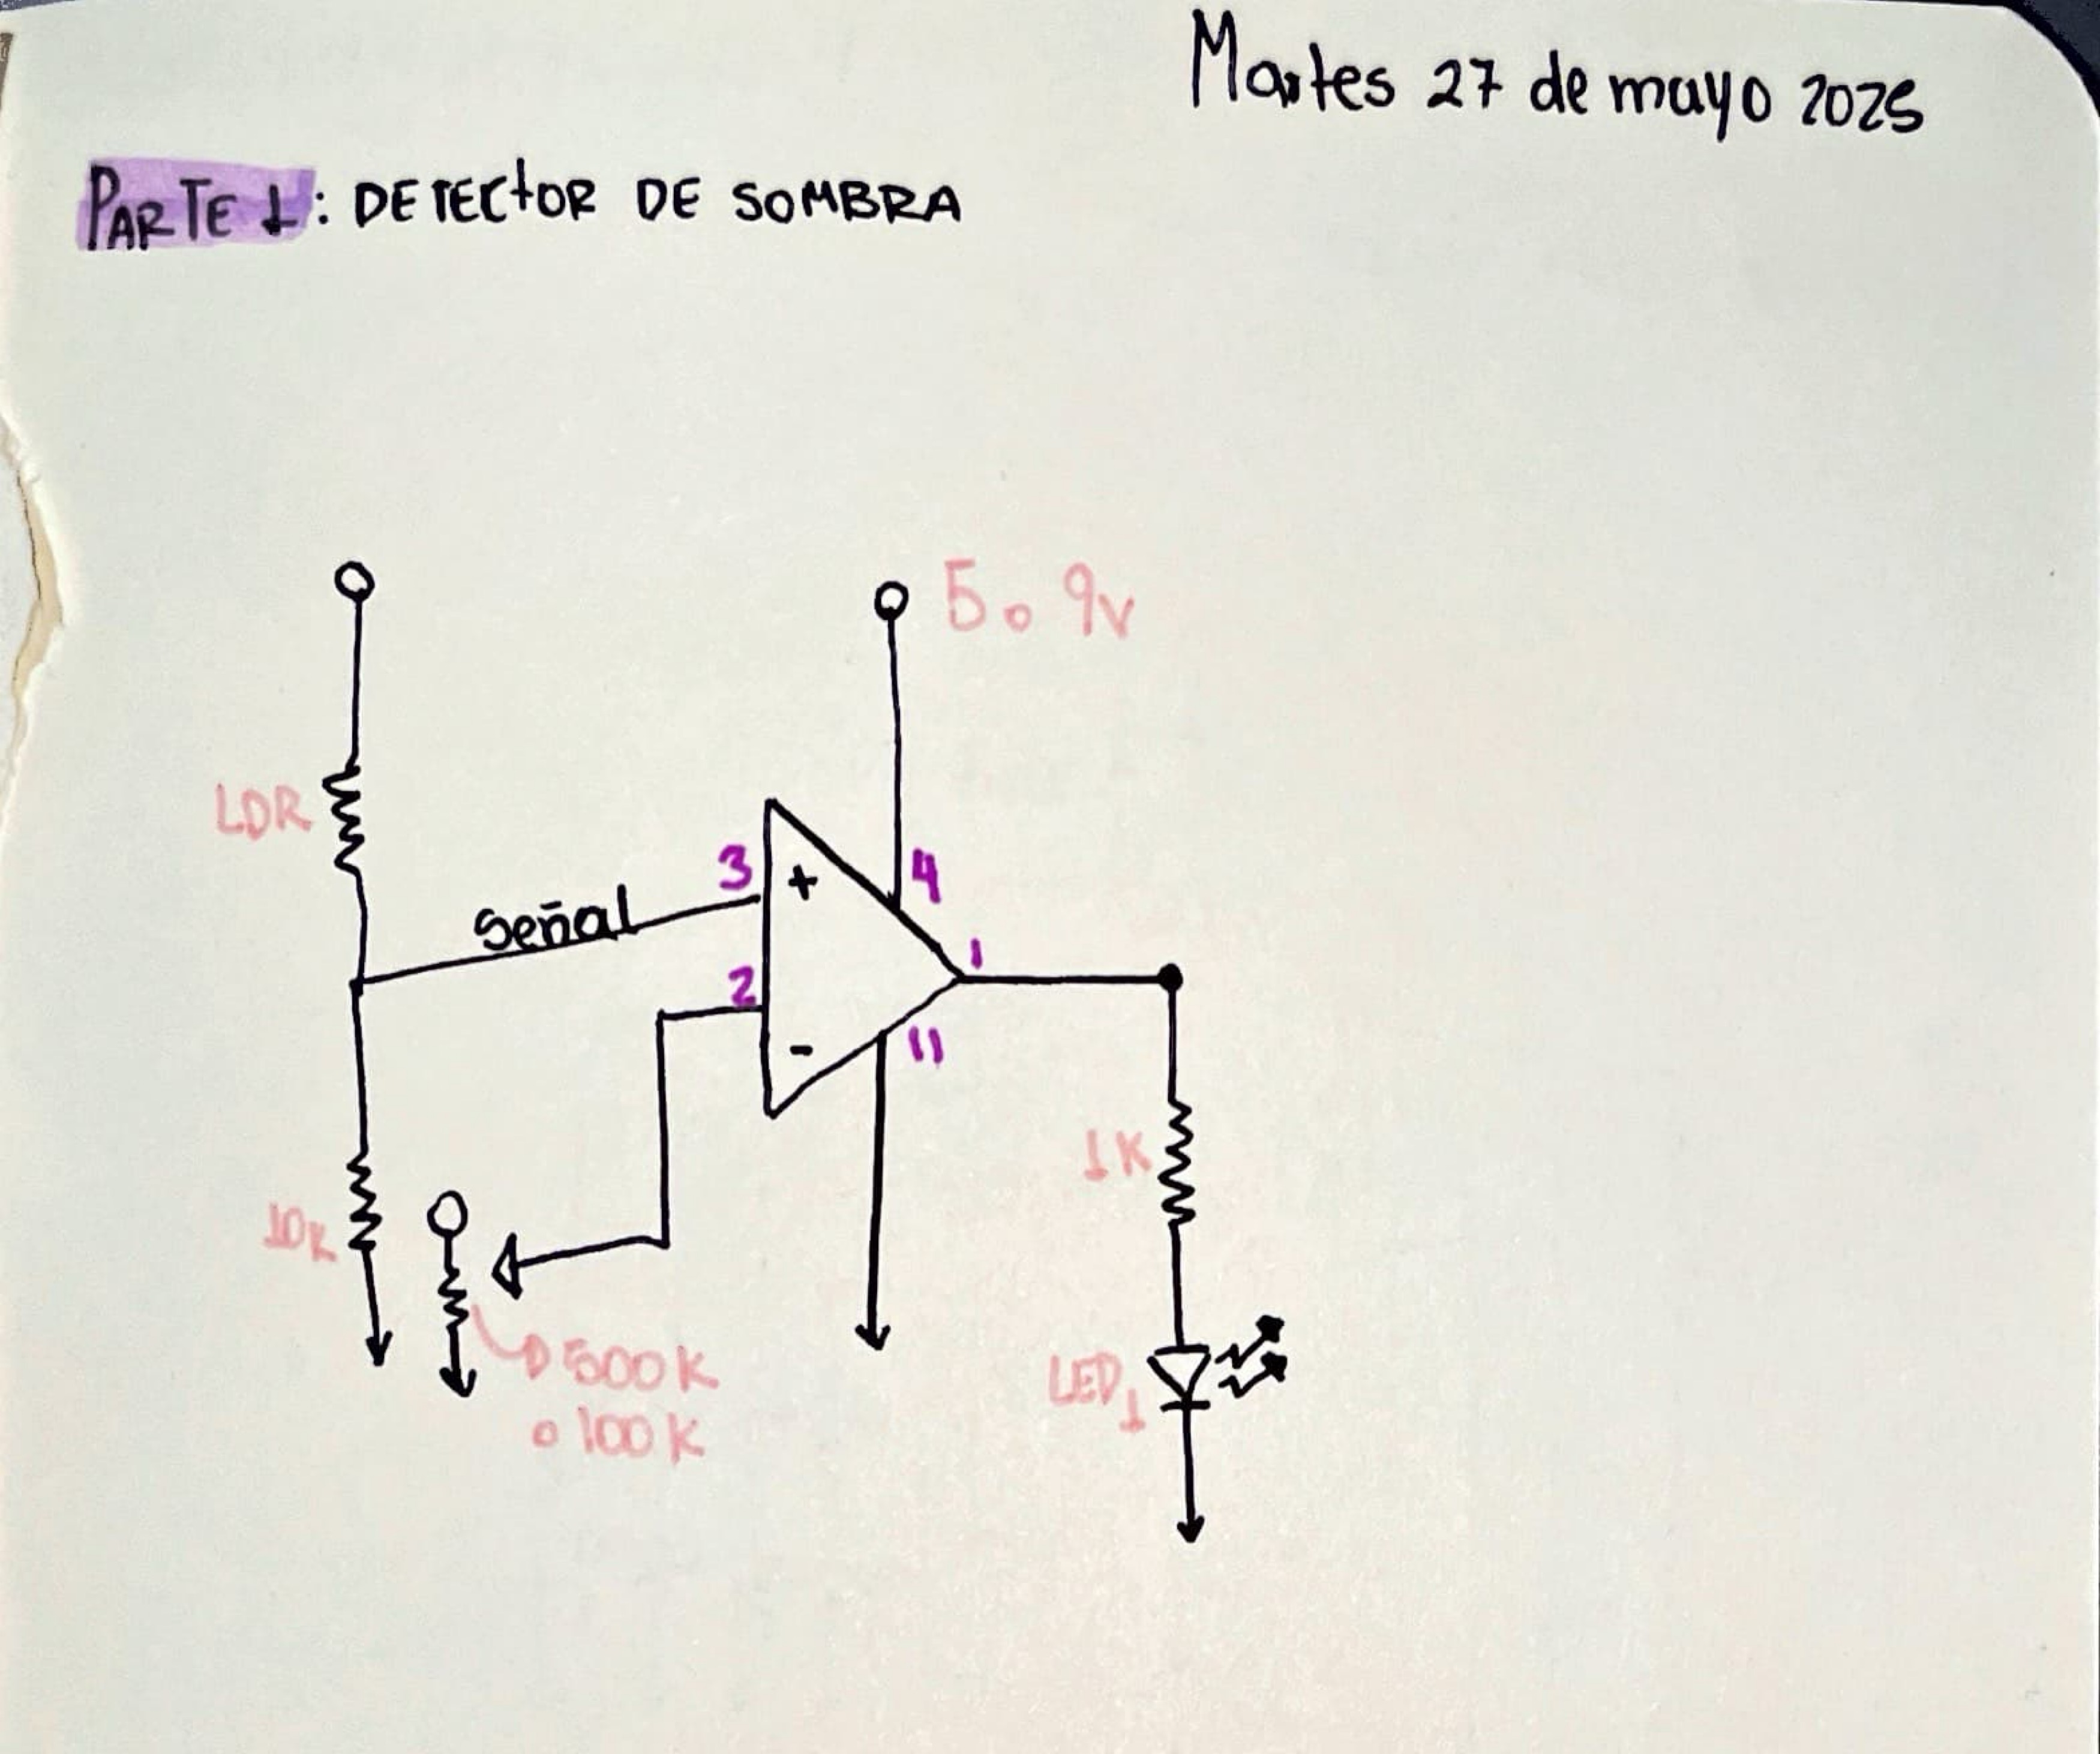 Martes 27 de mayo 2025
PARTE 1: DETECTOR DE SOMBRA
5 o 9v
LDR
Señal
3
+
4
2
1
-
11
1K
10K
500K
o 100K
LED1